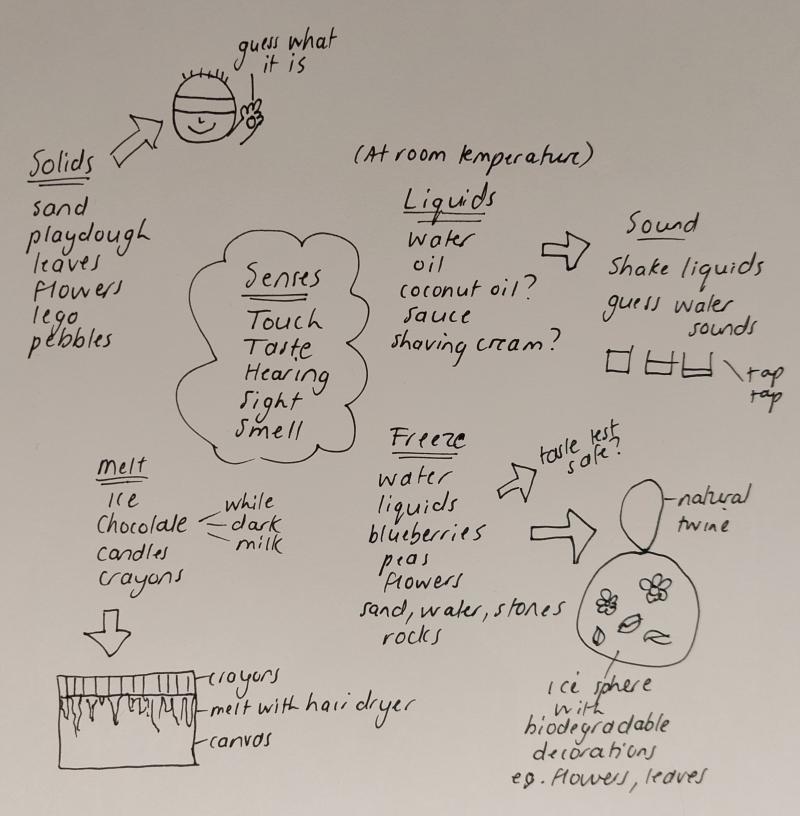 guess what
it is
Solids
sand
playdough
leaves
flowers
lego
pebbles
(At room temperature)
Liquids
water
oil
coconut oil?
sauce
shaving cream?
Sound
Shake liquids
guess water
sounds
tap
tap
Senses
Touch
Taste
Hearing
Sight
Smell
melt
ice
chocolate
candles
crayons
while
dark
milk
crayons
melt with hair dryer
canvas
Freeze
water
liquids
blueberries
peas
flowers
sand, water, stones
rocks
taste test
safe?
natural
twine
ice sphere
with
biodegradable
decorations
eg. flowers, leaves